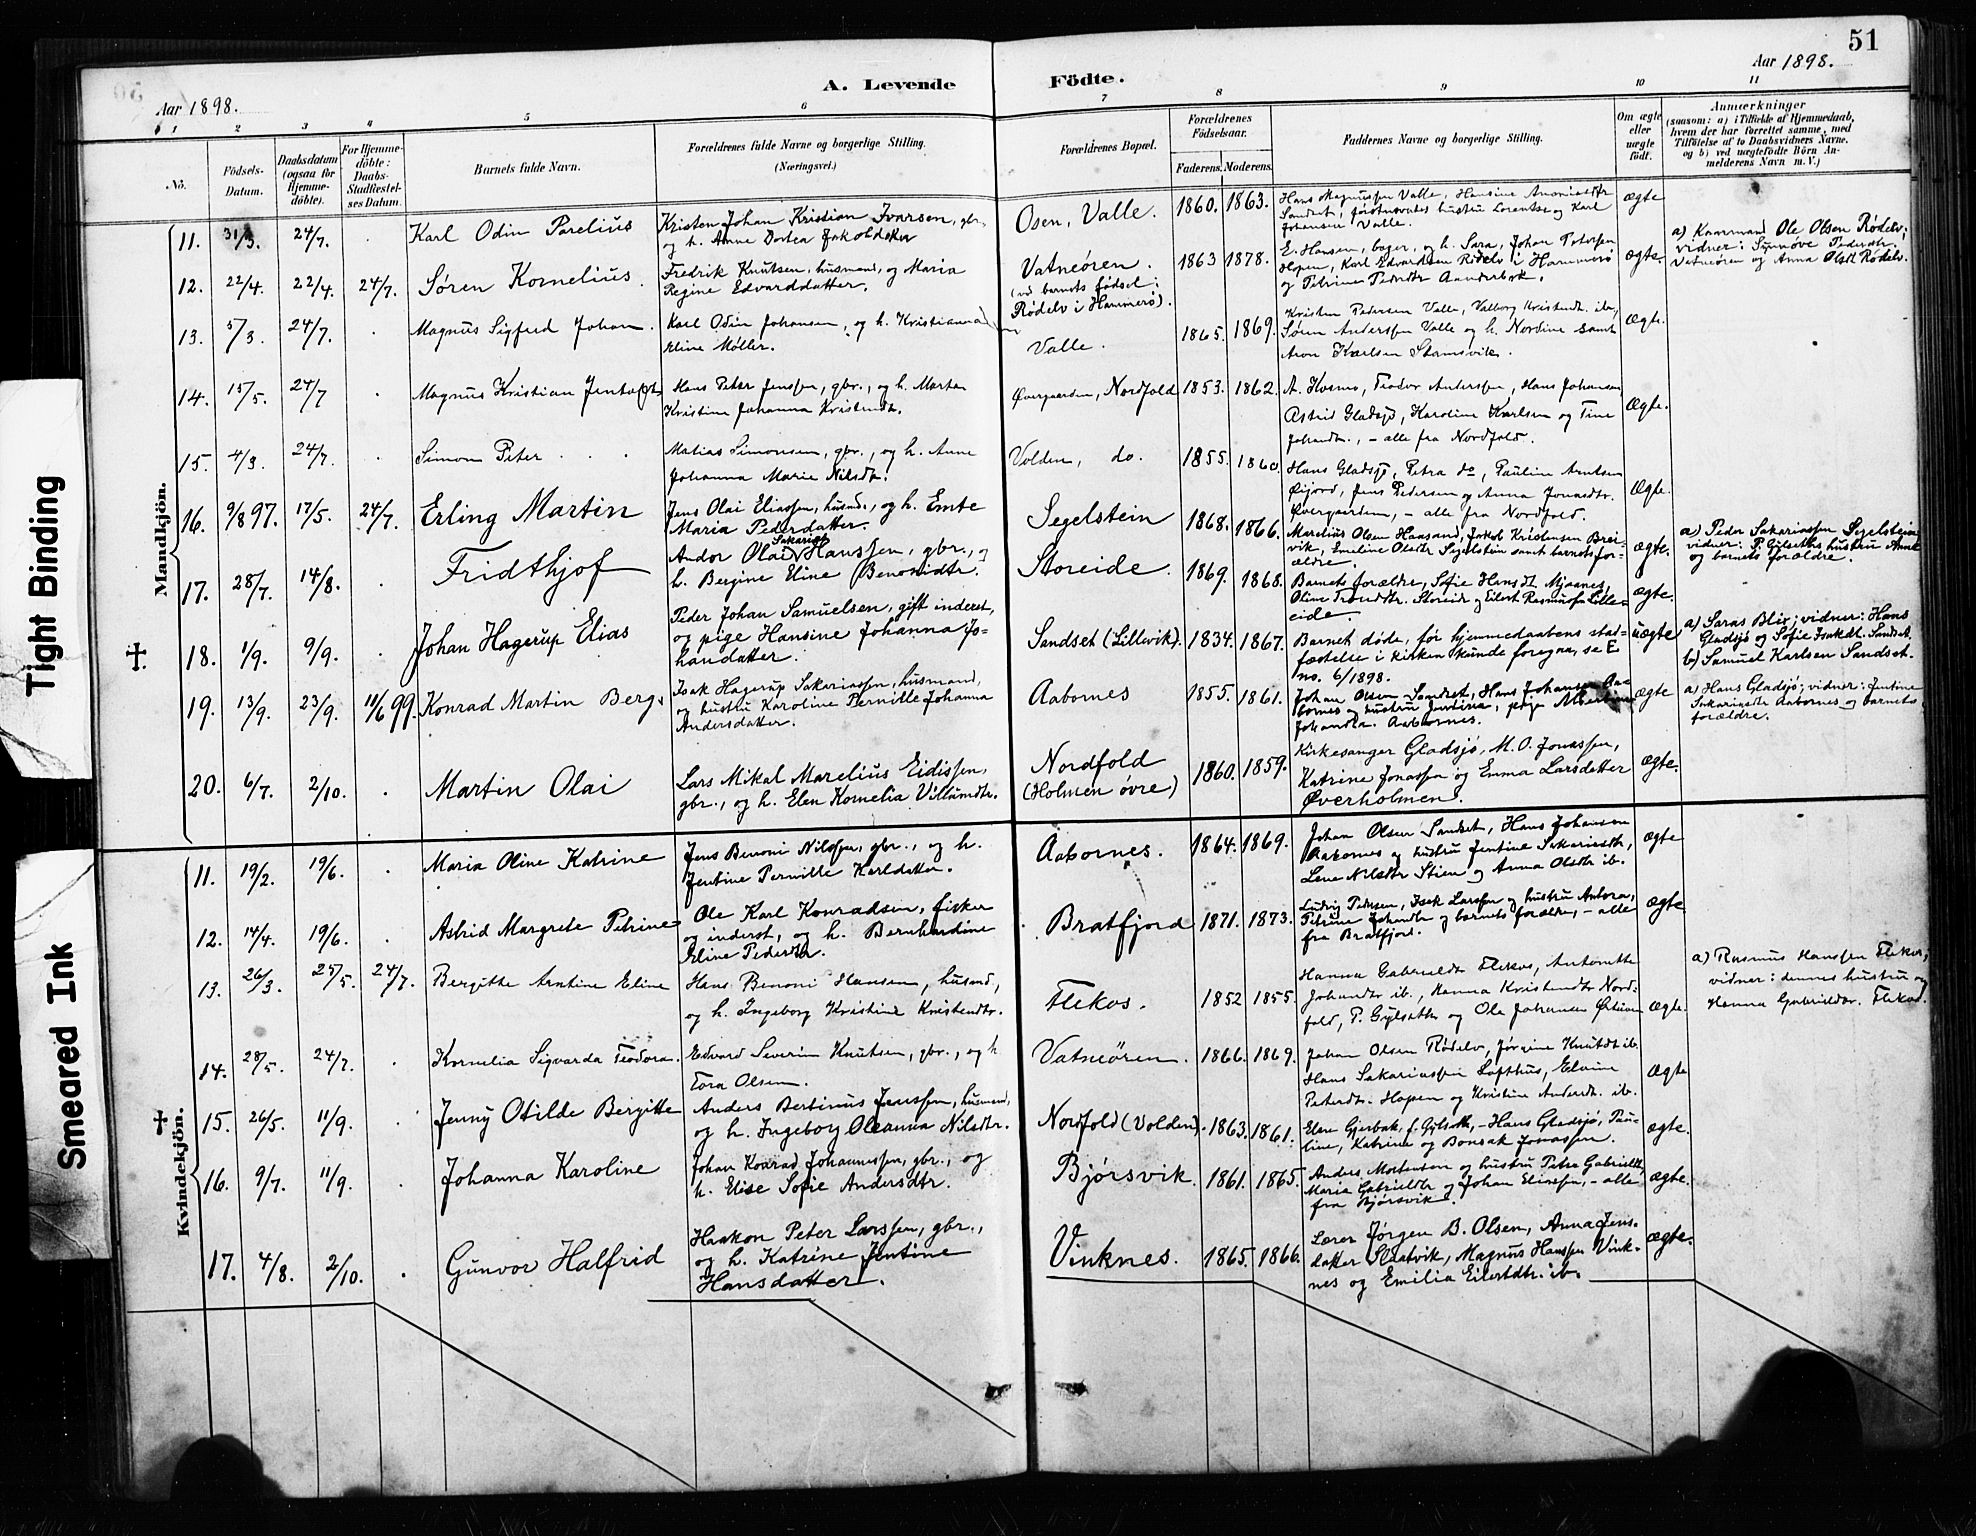 51
Aar 1898.
A. Levende
Födte.
Aar 1898.
1 2 3 4 5 6 7 8 9 10 11
No.
Födsels-Datum.
Daabsdatum (ogsaa for Hjemme-döbte).
For Hjemme-döbte: Daabs-Stadfæstel-ses Datum.
Barnets fulde Navn.
Forældrenes fulde Navne og borgerlige Stilling.
(Næringsvei.)
Forældrenes Bopæl.
Forældrenes Födselsaar.
Faderens. Moderens.
Faddernes Navne og borgerlige Stilling.
Om ægte eller uægte födt.
Anmærkninger
(saasom: a) i Tilfælde af Hjemmedaab,
hvem der har forrettet samme, med
Tilföielse af to Daabsvidners Navne.
og b) ved uægtefödte Börn An-
melderens Navn m. V.)
Mandkjön.
11. 31/3. 24/7. Karl Odin Parelius
Kristen Johan Kristian Ivarsen, gbr.,
og h. Anne Dortea Jakobsdatter
Osen, Valle. 1860. 1863.
Hans Magnussen Valle, Hansine
Sandset, førstnævntes hustru Lorentse og Karl
Johansen Valle.
ægte
12. 22/4. 22/4. 24/7. Søren Kornelius.
Fredrik Knutsen, husmand, og Maria
Regine Edvarddatter.
Vatneören.
(ved barnets fødsel:
Rödelv i Hammerö).
1863 1878.
E. Hansen, bager, og h. Sara, Johan Petersen
Hopen, Karl Edvardsen Rödelv i Hammerö
og Petrine Pedersdtr
ægte.
a) Kaarmand Ole Olsen Rödelv;
vidner: Synnöve Pedersdtr.
Vatneören og Anna Olsdt Rödelv.
13. 5/3 24/7. Magnus Sigfred Johan.
Karl Odin Johansen, og h. Kristianna
Eline Møller.
Valle. 1865. 1869.
Kristen Pedersen Valle, Valborg Kristendt. ib.,
Søren Anderssen Valle og h. Nordine samt
Aron Karlsen Stamsvik.
ægte.
14. 15/5. 24/7 Magnus Kristian Jentoft
Hans Peter Jenssen, gbr., og h. Marten
Kristine Johanna Kristendt.
Øvergaarden, Nordfold 1853. 1862.
A. Kosmo, Teodor Anderssen, Hans Johansen
Astrid Gladsjö, Karoline Karlsen og Tine
Johandtr., – alle fra Nordfold.
ægte.
15. 4/3. 24/7. Simon Peter
Matias Simonsen, gbr., og h. Anne
Johanna Marie Nilsdtr.
Volden, do. 1855. 1860.
Hans Gladsjö, Petra do, Pauline Arntsen
Øijord, Jens Pedersen og Anna Jonasdtr.
Øvergaarden, – alle fra Nordfold.
ægte.
16. 9/8 97. 17/5. 24/7. Erling Martin
Jens Olai Eliassen, husmd., og h. Emte
Maria Pedersdatter.
Segelstein 1868. 1866.
Marelius Olsen Hansand, Jakob Kristensen Brei-
vik, Emeline Olsdtr Segelstein samt barnets for-
ældre.
ægte.
a) Peder Sakariassen Segelstein
vidner: P. Gylseths hustru Anna
og barnets forældre.
17. 28/7. 14/8. Fridthjof
Andor Olai Sakarias Hanssen, gbr., og
h. Bergine Eline Benonidtr.
Storeide. 1869. 1868.
Barnets forældre, Sofie Hansdt. Mjaanes,
Oline Trondtr. Storeide og Eilert Rasmussen Lille-
eide.
ægte.
18. 1/9. 9/9. Johan Hagerup Elias
Peder Johan Samuelsen, gift inderst,
og pige Hansine Johanna Jo-
handatter.
Sandset (Lillevik). 1834. 1867.
Barnet døde, før hjemmedaabens stad-
fæstelse i kirken kunde foregaa, se E
no. 6/1898.
uægte
a) Saras Blix; vidner: Hans
Gladsjö og Sofie Isakdt. Sandset.
b) Samuel Karlsen Sandset.
19. 13/9. 23/9. 11/6 99. Konrad Martin Berg.
Isak Hagerup Sakariassen, husmand,
og hustru Karoline Pernille Johanna
Andersdatter.
Aabornes 1855. 1861.
Johan Olsen Sandset, Hans Johansen Aa-
bornes og hustru Jentine, pige Albertine
Johandtr. Aabornes.
ægte
a) Hans Gladsjö; vidner: Jentine
Sakariasdtr Aabornes og barnets
forældre.
20. 6/7. 2/10. Martin Olai
Lars Mikal Marelius Eidissen,
gbr., og h. Elen Kornelia Villumdtr.
Nordfold
(Holmen övre)
1860. 1859.
Kirkesanger Gladsjö, M. O. Jonassen,
Katrine Jonassen og Emma Larsdatter
Øverholmen.
ægte.
Kvindekjön.
11. 19/2. 19/6. Maria Oline Katrine
Jens Benoni Nilssen, gbr., og h.
Jentine Pernille Karldatter.
Aabornes. 1864. 1869.
Johan Olsen Sandset, Hans Johansen
Aabornes og hustru Jentine Sakariasdtr,
Lene Nilsdtr Stien og Anna Olsdtr ib.
ægte
12. 14/4. 19/6. Astrid Margrete Petrine
Ole Karl Konradsen, fisker
og inderst, og h. Bernhardine
Eline Pedersdtr.
Bratfjord 1871. 1873.
Ludvig Pedersen, Isak Larssen og hustru Antora,
Petrine Johandtr og barnets forældre, – alle
fra Bratfjord.
ægte
13. 26/3. 25/5. 24/7. Bergitte Arntine Eline
Hans Benoni Hansen, husmd.,
og h. Ingeborg Kristine Kristendtr.
Flekos. 1852 1855.
Hanna Gabrieldtr Flekos, Antonette
Johandtr ib., Hanna Kristendtr Nord-
fold, P. Gylseth og Ole Johansen
ægte.
a) Rasmus Hanssen Flekos,
vidner: dennes hustru og
Hanna Gabrieldtr. Flekos.
14. 28/5. 24/7. Kornelia Sigvarda Teodora.
Edvard Severin Knutsen, gbr., og h
Tora Olsen.
Vatneören. 1866. 1869.
Johan Olsen Rödelv, Jørgine Knutdt ib.
Hans Sakariassen Lofthus, Elvine
Petersdtr. Hopen og Kristine Andersdt. ib.
ægte
15. 26/5. 11/9. Jenny Otilde Bergitte
Anders Bertinus Jenssen, husmand,
og h. Ingeborg Oleanna Nilsdtr.
Nordfold (Volden). 1863. 1861.
Elen Gjerbak, f. Gylseth, – Hans Gladsjö, Pau-
line, Katrine og Bonsak Jonassen.
ægte.
16. 9/7. 11/9. Johanna Karoline
Johan Konrad Johannessen, gbr., og
h. Elise Sofie Andersdtr.
Bjørsvik. 1861. 1865.
Anders Mortensen og hustru Petra Gabrieldtr,
Maria Gabrieldtr og Johan Eliassen, – alle
fra Bjørsvik.
ægte.
17. 4/8. 2/10. Gunvor Halfrid
Haakon Peter Larssen, gbr.,
og h. Katrine Jentine
Hansdatter.
Vinknes. 1865. 1866.
Lærer Jørgen B. Olsen, Anna Jens-
datter Slaatvik, Magnus Hanssen Vink-
nes og Emilia Eilertdtr. ib.
ægte.
Tight Binding
Smeared Ink